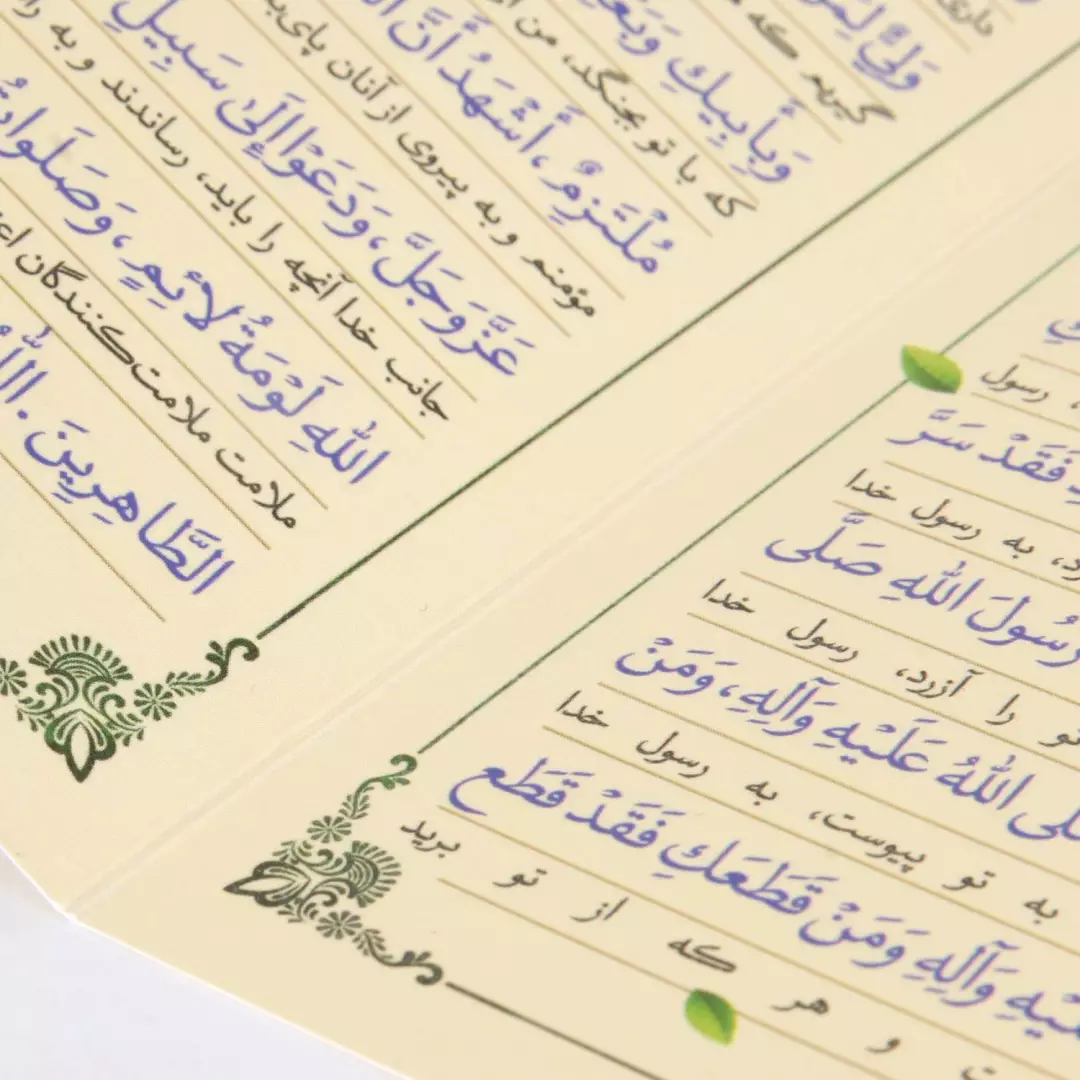 رسول
فَقَدْ سَرَّ
به رسول خدا
رَسُولَ اللهِ صَلَّى
تو را آزرد، رسول خدا
اللهُ عَلَيْهِ وَآلِهِ، وَمَنْ
به تو پیوست، به رسول خدا
وَآلِهِ وَمَنْ قَطَعَكِ فَقَدْ قَطَع
و هر که از تو برید
وَلِيٌّ
که
وَبِأَبِيكِ
که با تو بجنگد، من
مُلْتَزِمٌ، أَشْهَدُ أَنَّ
مؤمنم و به پیروی از آنان پای
عَزَّ وَجَلَّ، وَدَعَوْا إِلَىٰ سَبِيلِ
جانب خدا آنچه را باید، رساندند و به
اللهِ لَوْمَةُ لَائِمٍ، وَصَلَوَاتُ
ملامت ملامت‌کنندگان
الطَّاهِرِينَ.